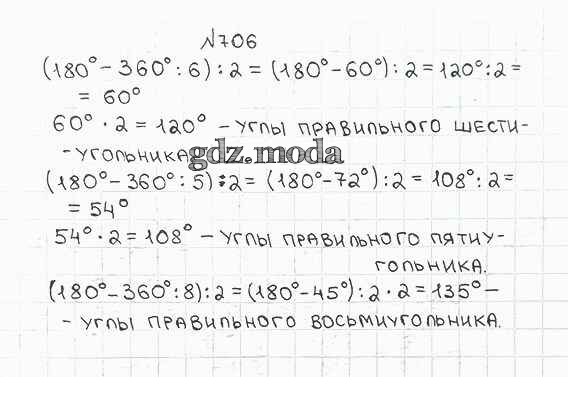 №706
(180° - 360° : 6) : 2 = (180° - 60°) : 2 = 120° : 2 =
= 60°
60° · 2 = 120° - УГЛЫ ПРАВИЛЬНОГО ШЕСТИ-
- УГОЛЬНИКА
gdz.moda
(180° - 360° : 5) : 2 = (180° - 72°) : 2 = 108° : 2 =
= 54°
54° · 2 = 108° - УГЛЫ ПРАВИЛЬНОГО ПЯТИУ-
ГОЛЬНИКА.
(180° - 360° : 8) : 2 = (180° - 45°) : 2 · 2 = 135° -
- УГЛЫ ПРАВИЛЬНОГО ВОСЬМИУГОЛЬНИКА.